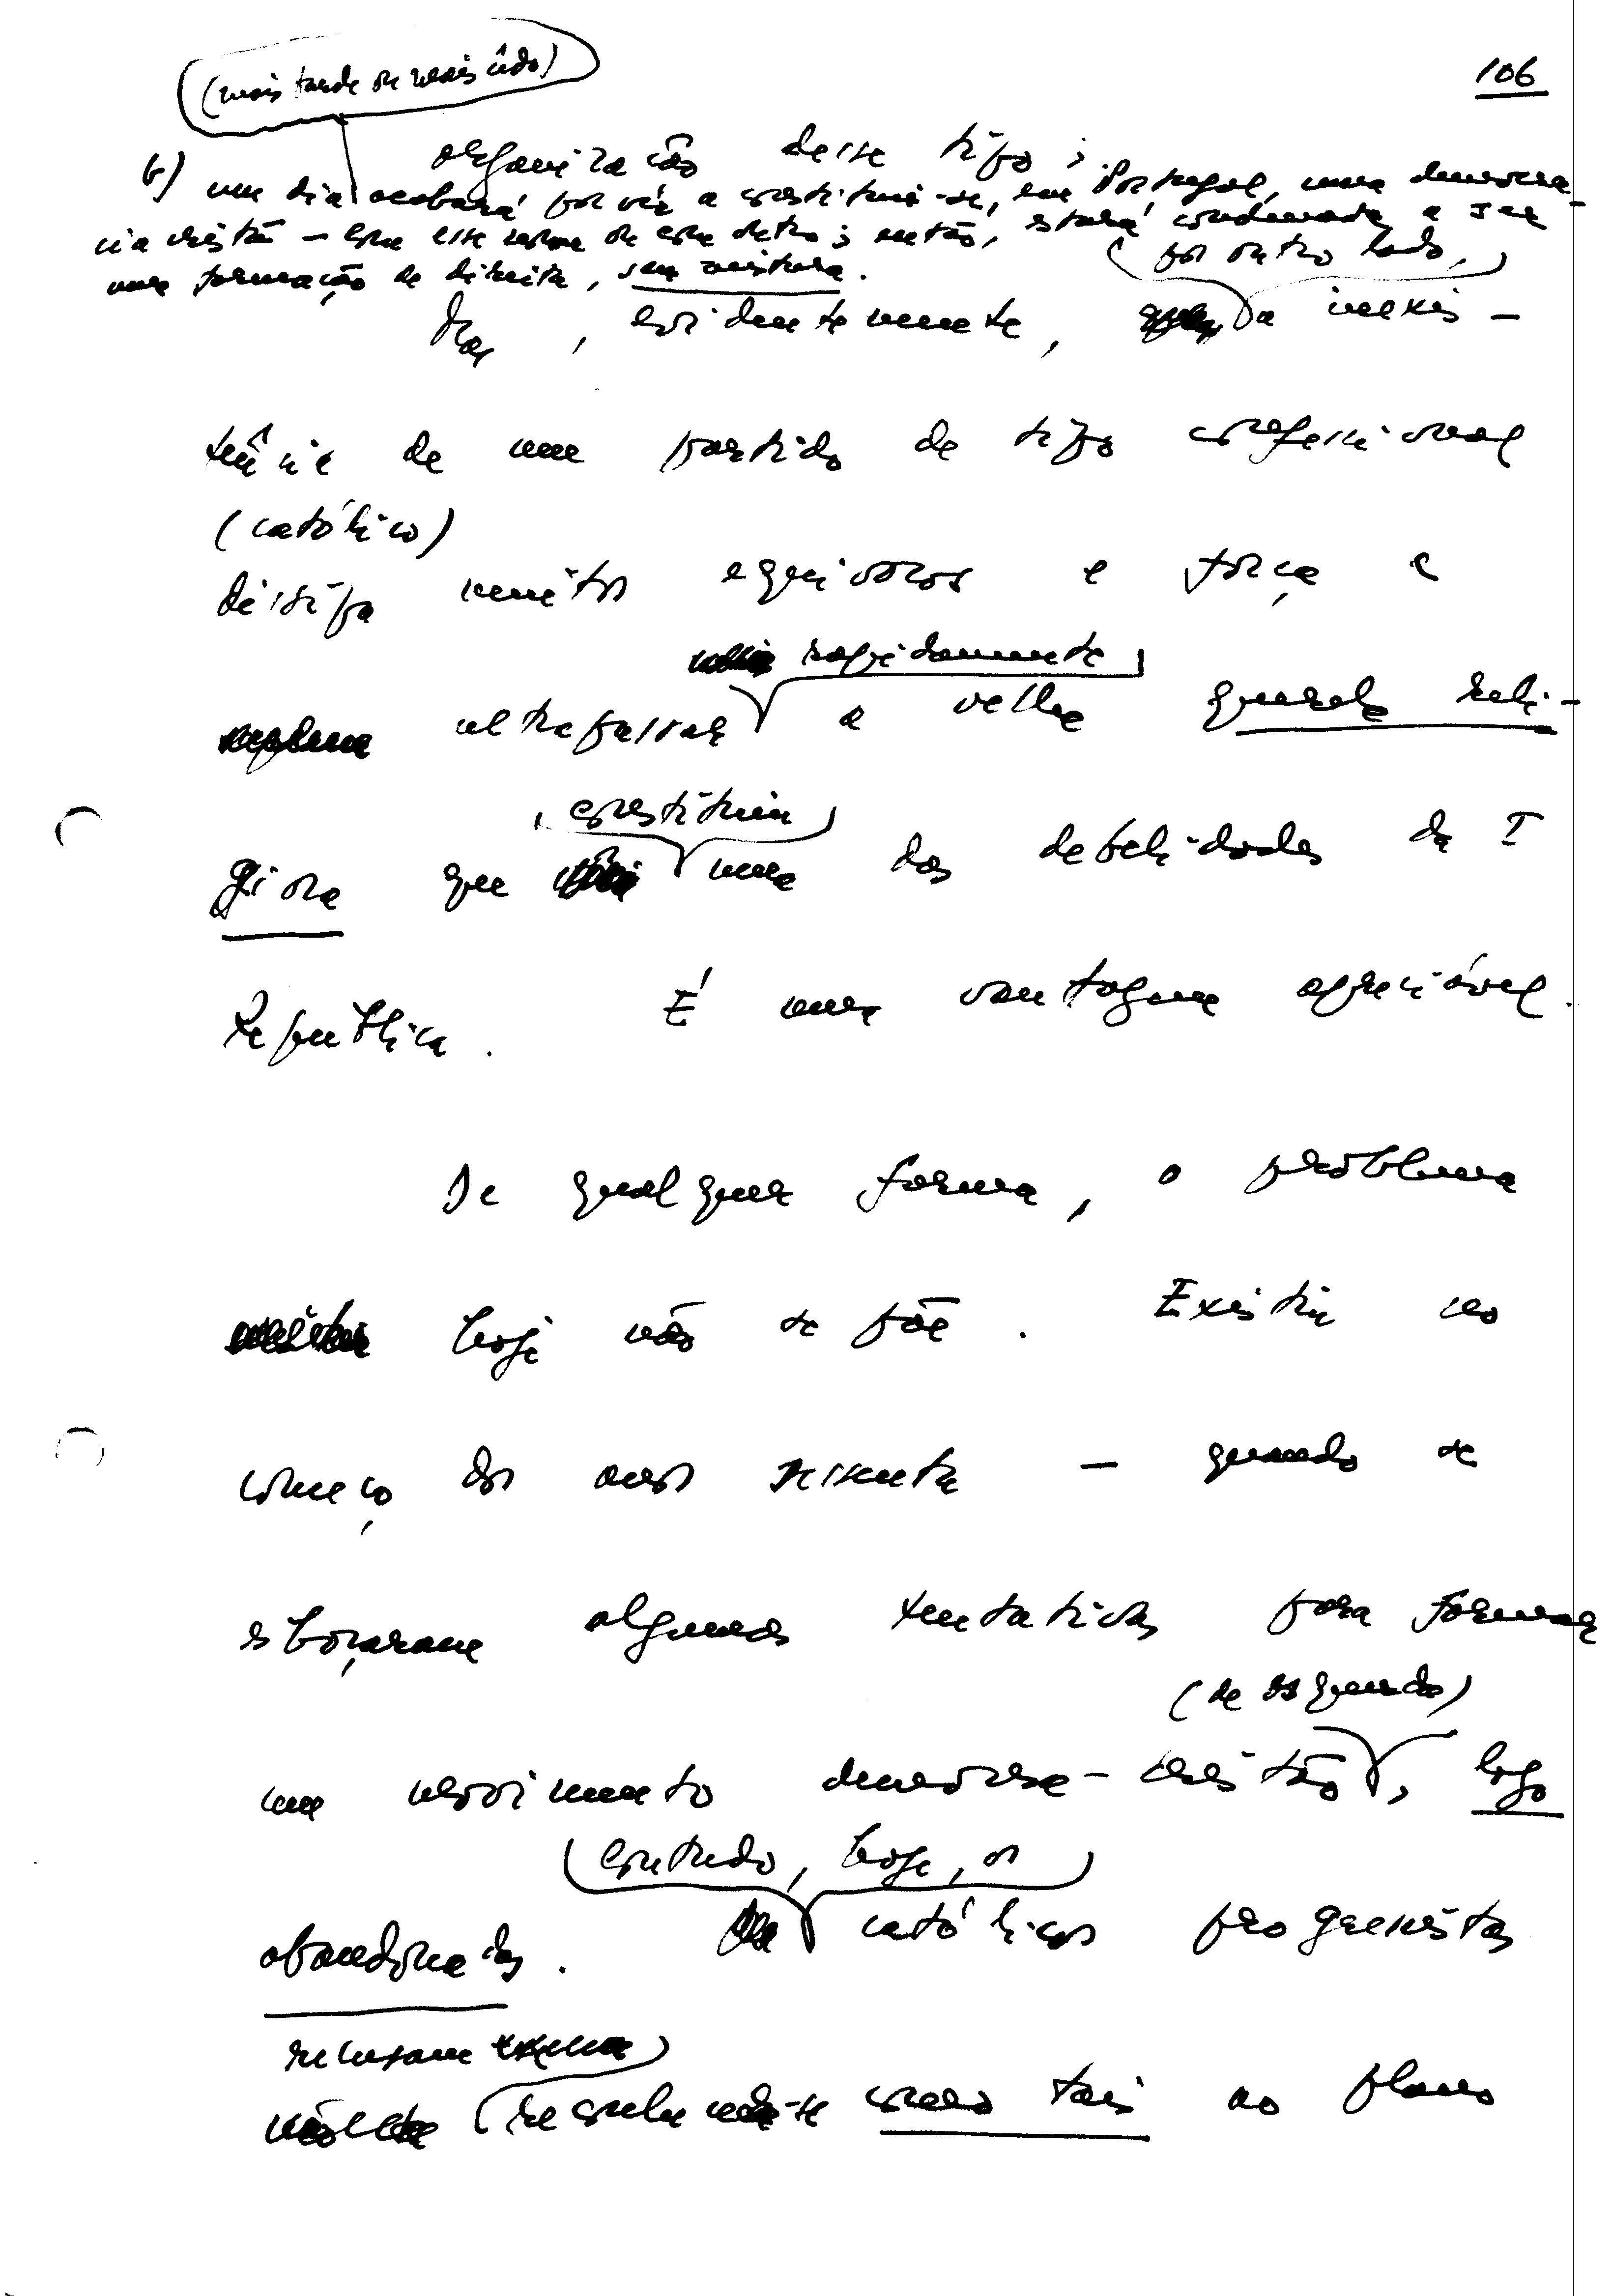 106
(mais tarde ou mais cêdo)
organização desse tipo;
b) um dia acabará por vir a constituir-se, em Portugal, uma democra-
cia cristã — com esse nome ou com outro; então, estará condenada a ser
uma formação de direita, sem mistura.
(por outro lado,)
Mas, evidentemente, a inexis-
tência de um partido de tipo confessional
(católico)
dissipa muitos equívocos e força a
rapidamente
ultrapassar a velha querela reli-
constituiu
giosa que uma das debilidades da I
República. É uma vantagem apreciável.
De qualquer forma, o problema
hoje não se põe. Existiu no
começo dos anos sessenta — quando se
esboçaram algumas tentativas para formar
(de esquerda)
um movimento democrata-cristão, logo
(contudo, hoje, os)
abandonadas. católicos progressistas
recusam
reconhecer-se como tais no plano